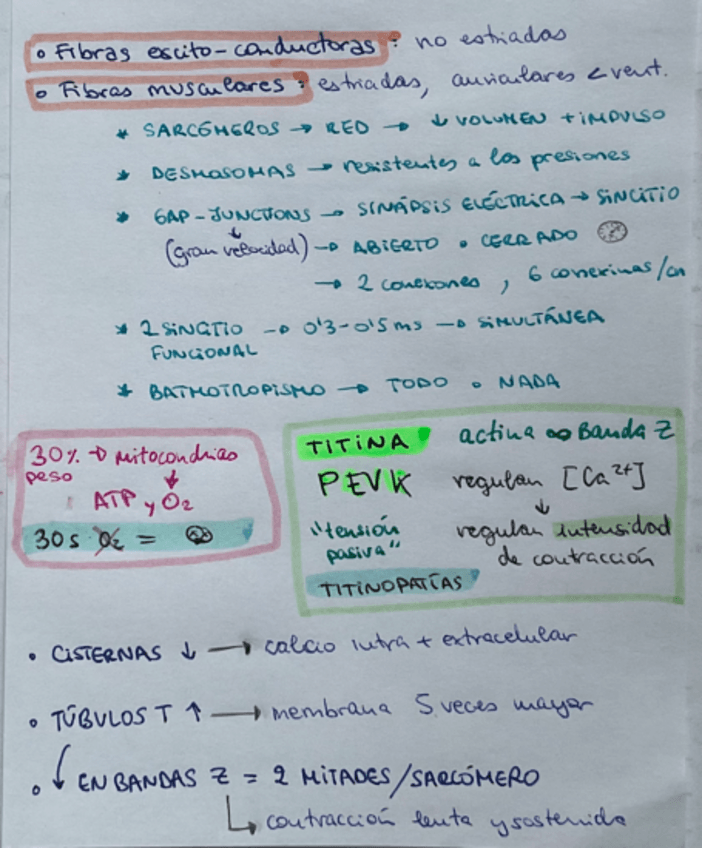 • Fibras escito-conductoras: no estriadas
• Fibras musculares: estriadas, auriculares < vent.
* SARCÓMEROS → RED → ↓ VOLUMEN + IMPULSO
* DESMOSOMAS → resistentes a las presiones
* GAP-JUNCTIONS → SINÁPSIS ELÉCTRICA → SINCITIO
(gran velocidad) → ABIERTO o CERRADO
→ 2 conexones, 6 conexinas/cn
* 2 SINCITIO → 0'3-0'5 ms → SIMULTÁNEA
FUNCIONAL
* BATMOTROPISMO → TODO o NADA
30% → mitocondrias
peso ↓
ATP y O₂
30 s O₂ =
TITINA actina ∞ Banda Z
PEVK regulan [Ca²⁺]
↓
"tensión regulan intensidad
pasiva" de contracción
TITINOPATÍAS
• CISTERNAS ↓ → calcio intra + extracelular
• TÚBULOS T ↑ → membrana 5 veces mayor
• ↓ EN BANDAS Z = 2 MITADES/SARCÓMERO
↳ contracción lenta y sostenida